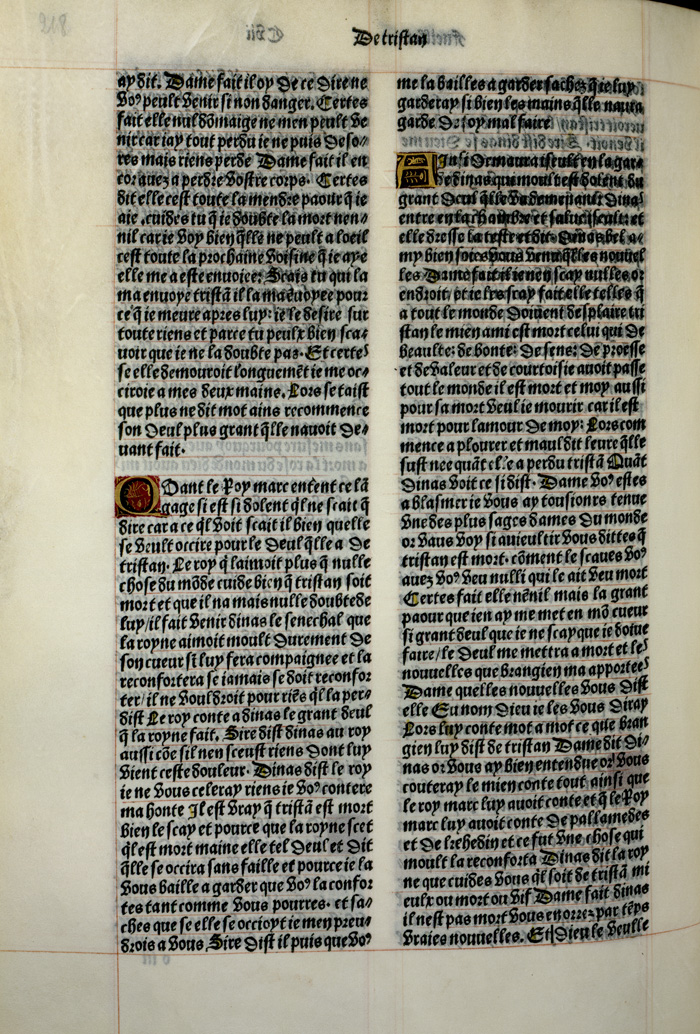 218
De tristan
ay dit. Dame fait il oy de ce dire ne
vo⁹ peult venir si non danger. Certes
fait elle nul dõmaige ne men peult ve
nir car iay tout perdu ie ne puis deso⸗
res mais riens perde Dame fait il en
cor auez a perdre vostre corps. Certes
dit elle cest toute la mendre paour q̃ ie
aie, cuides tu q̃ ie doubte la mort nen⸗
nil car ie voy bien q̃lle ne peult a loeil
cest toute la prochaine voisine q̃ ie aye
elle me a este enuoiee: Scais tu qui la
ma enuoye tristã il la ma ẽuoyee pour
ce q̃ ie meure apres luy: ie le desire sur
toute riens et parce tu peulx bien sca⸗
uoir que ie ne la doubte pas. Et certeˢ
se elle demouroit longuemẽt ie me oc⸗
ciroie a mes deux mains. Lors se taist
que plus ne dit mot ains recommence
son deul plus grant q̃lle nauoit de⸗
uant fait.
QUant le Roy marc entent ce lã
gage si est si dolent q̃l ne scait q̃
dire car a ce q̃l voit scait il bien quelle
se veult occire pour le deul q̃lle a de
tristan. Le roy q̃ laimoit plus q̃ nulle
chose du mõde cuide bien q̃ tristan soit
mort et que il na mais nulle doubte de
luy/il fait venir dinas le senechal que
la royne aimoit moult durement de
son cueur si luy fera compaignee et la
reconfortera se iamais se doit reconfor
ter/il ne vouldroit pour riẽs q̃l la per⸗
dist Le roy conte a dinas le grant deul
q̃ la royne fait. Sire dist dinas au roy
aussi cõe sil nen sceust riens dont luy
vient ceste douleur. Dinas dist le roy
ie ne vous celeray riens ie vo⁹ contere
ma honte Il est vray q̃ tristã est mort
bien le scay et pource que la royne scet
q̃l est mort maine elle tel deul et dit
q̃lle se occira sans faille et pource ie la
vous baille a garder que vo⁹ la confor
tes tant comme vous pourres. et sa⸗
ches que se elle se occioyt ie men preu⸗
drois a vous. Sire dist il puis que vo⁹
me la bailles a garder sachez q̃ ie luy
garderay si bien les mains q̃lle naura
garde de soy mal faire
AInsi demaura iseult en la gar⸗
de dinas qui moult est dolent du
grant deul q̃lle va demenant dinas
entre en la chambre et salue iseult: et
elle dresse la teste et dit. Dinas bel a⸗
my bien soies vous venu q̃lles nouuel
les Dame fait il ie nen scay nulles or
endroit, et ie les scay fait elle telles q̃
a tout le monde doiuent desplaire tri
stan le mien ami est mort celui qui de
beaulte: de bonte: de sens: de proesse
et de valeur et de courtoisie auoit passe
tout le monde il est mort et moy aussi
pour sa mort veul ie mourir car il est
mort pour lamour de moy: Lors com
mence a plourer et mauldit leure q̃lle
fust nee quãt elle a perdu tristã Quãt
Dinas voit ce si dist. Dame vo⁹ estes
a blasmer ie vous ay tousiours tenue
vne des plus sages dames du monde
or vaus voy si auieultir vous dittes q̃
tristan est mort. cõment le scaues vo⁹
auez vo⁹ veu nulli qui le ait veu mort
Certes fait elle nẽnil mais la grant
paour que ien ay me met en mõ cueur
si grant deul que ie ne scay que ie doiue
faire/le deul me mettra a mort et leˢ
nouuelles que brangien ma apporteeˢ
Dame quelles nouuelles vous dist
elle Eu nom dieu ie les vous diray
Lors luy conte mot a mot ce que bran
gien luy dist de tristan Dame dit di⸗
nas or vous ay bien entendue or vous
couteray le mien conte tout ainsi que
le roy marc luy auoit conte et q̃ le Roy
marc luy auoit conte de pallamedes
et de kehedin et ce fut vne chose qui
moult la reconforta Dinas dit la roy
ne que cuides vous q̃l soit de tristã mi
eulx ou mort ou vif Dame fait dinas
il nest pas mort vous en orrez par tẽps
vraies nouuelles. Et dieu le veulle